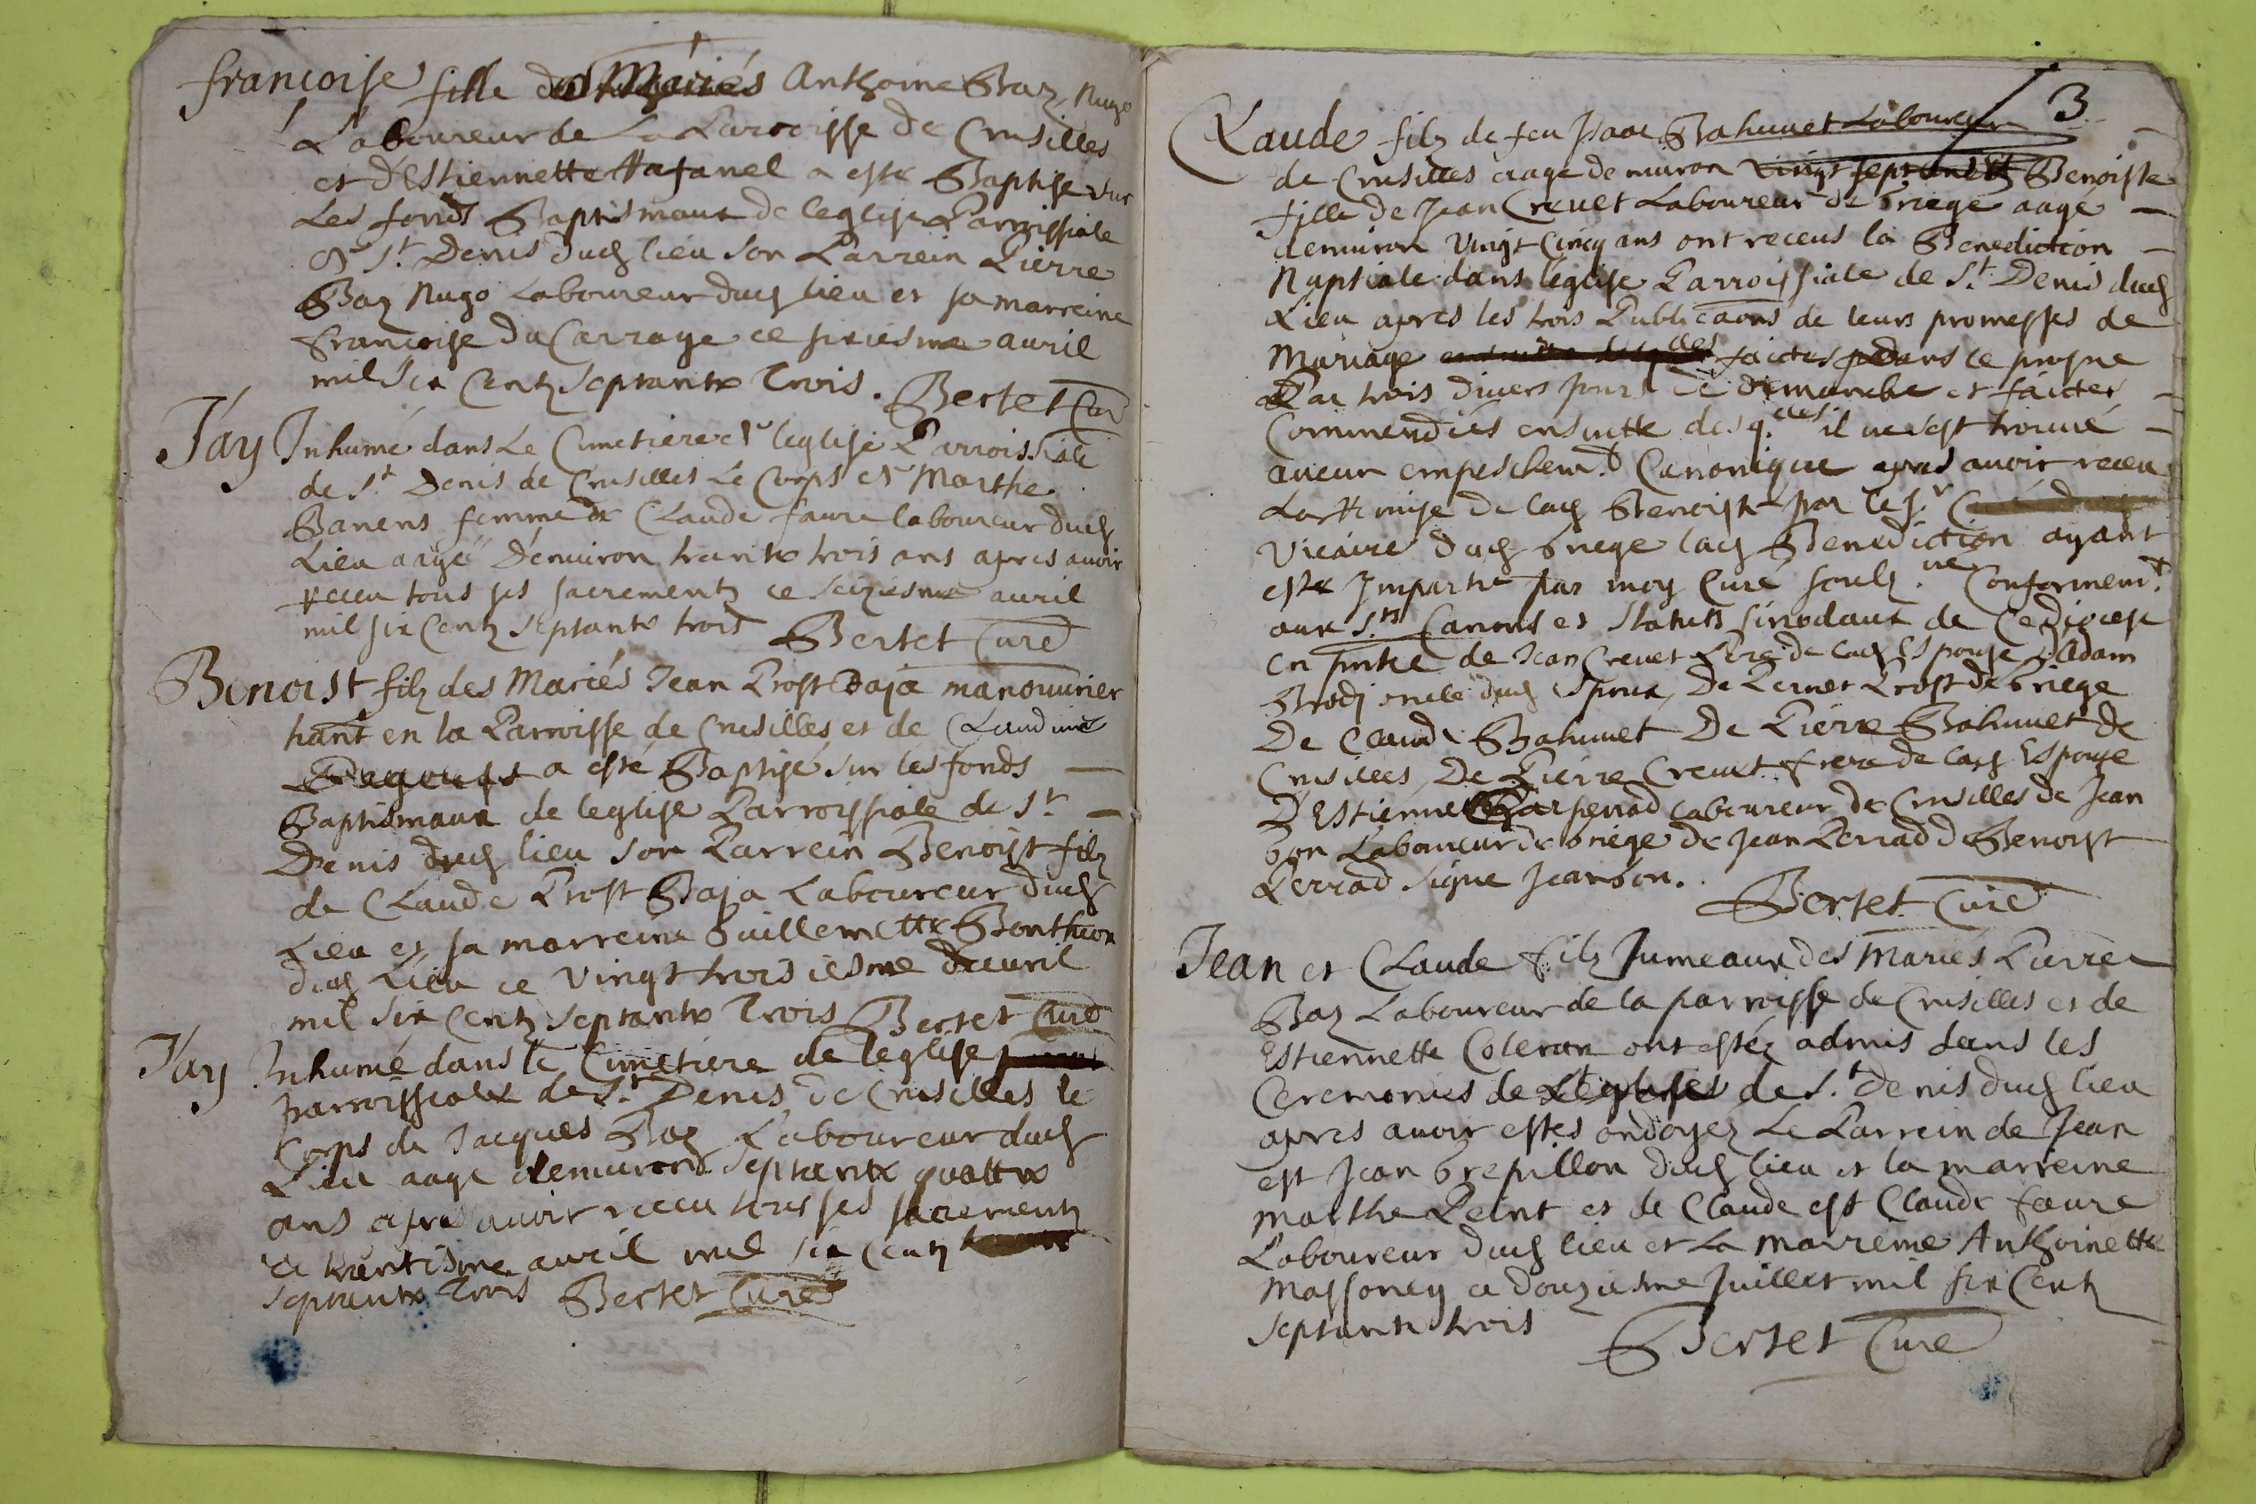 françoise fille des Mariés Anthoine Baz Nugo
Laboureur de La Parroisse de Crusilles
et d'Estiennette Hafanel a esté Baptisé sur
Les fonds Baptismaux de leglise Parroissiale
de St Denis dud lieu son Parrein Pierre
Baz Nugo Laboureur dud lieu et sa marreine
françoise du Carrage ce siziesme auril
mil six Centz septante Trois. Bertet Curé
J'ay Inhumé dans Le Cimetiere de l'eglise Parroissiale
de St Denis de Crusilles Le Corps de Marthe
Banens femme de Claude faure laboureur dud
Lieu aagé d'enuiron trante trois ans apres auoir
receu tous ses sacrementz ce seiziesme auril
mil six Centz septante trois Bertet Curé
Benoist filz des Mariés Jean Prost Baja manouurier
hant en la Parroisse de Crusilles et de Claudine
a esté Baptisé sur les fonds
Baptismaux de leglise Parroissiale de St
Denis dud lieu son Parrein Benoist filz
de Claude Prost Baja Laboureur dud
Lieu et sa marreine Guillemette Bonthion
dud Lieu ce vingt troisiesme d'auril
mil six Centz septante Trois Bertet Curé
J'ay Inhumé dans le Cimetiere de l'eglise
parroissiale de St Denis de Crusilles le
Corps de Jacques Baz Laboureur dud
Lieu aagé d'enuiron septante quattre
ans apres auoir receu tous ses sacrementz
ce trantiesme auril mil six Centz
septante Trois Bertet Curé
3
Claude filz de feu Isaac Bahuuet Laboureur
de Crusilles aagé denuiron vingt sept ans et Benoiste
fille de Jean Creuet Laboureur de Griege aagé
denuiron vingt Cinq ans ont receus la Benediction
Nuptiale dans leglise Parroissiale de St Denis dud
Lieu apres les trois Publicaons de leurs promesses de
Mariage faictes dans le prosne
Par trois diuers jours de dimanche et faictes
Commendiés ensuitte desq.elles il ne sest trouué
aucun empeschemt Canonique apres auoir receu
La Remise de lad Benoiste par le sr
Vicaire dud Griege lad Benediction ayant
esté Impartie par moy Curé soubz.né Conformemt
aux Sts Canons et statuts sinodaux de Ce diocese
en pntce de Jean Creuet Pere de lad Espouse d'Adam
Brodj oncle dud Epoux, De Pernet Prost de Griege
De Claude Bahuuet De Pierre Bahuuet de
Crusilles De Pierre Creuet frere de lad Espouse
D'Estienne Laboureur de Crusilles de Jean
Gon Laboureur de Griege de Jean Perrad d Benoist
Perrad signé Jean Gon.
Bertet Curé
Jean et Claude filz Jumeaux des Mariés Pierre
Baz Laboureur de la parroisse de Crusilles et de
Estiennette Coleran ont estéz admis dans les
Ceremonies de L'eglise de St Denis dud lieu
apres auoir estés ondoyez Le Parrein de Jean
est Jean Grepillon dud lieu et la marreine
Marthe Peint et de Claude est Claude faure
Laboureur dud lieu et La marreine Anthoinette
Massoney ce douziesme Juillet mil six Centz
septante trois Bertet Curé